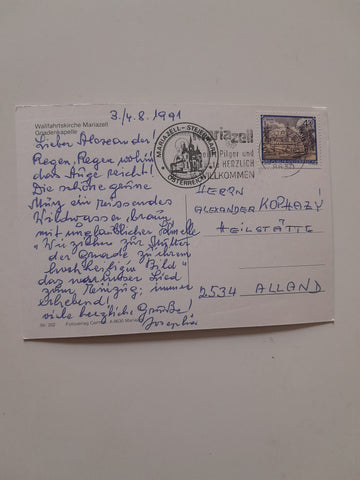 3./4.8.1991
Wallfahrtskirche Mariazell
Gnadenkapelle
Lieber Alexander!
Regen, Regen wohin
das Auge reicht!
Die schöne grüne
Mürz ein reissendes
Wildwasser, braun,
mit unglaublicher Schnelle
"Wir ziehen zur Mutter
der Gnade zu ihrem
hochheiligen Bild"
das war unser Lied
zum Einzug: immer
erhebend!
viele herzliche Grüße!
Josephin
MARIAZELL - STEIERMARK
ÖSTERREICH
Mariazell
Pilger und
HERZLICH
WILLKOMMEN
HERRN
ALEXANDER KOPHAZY
HEILSTÄTTE
2534 ALLAND
Nr. 202